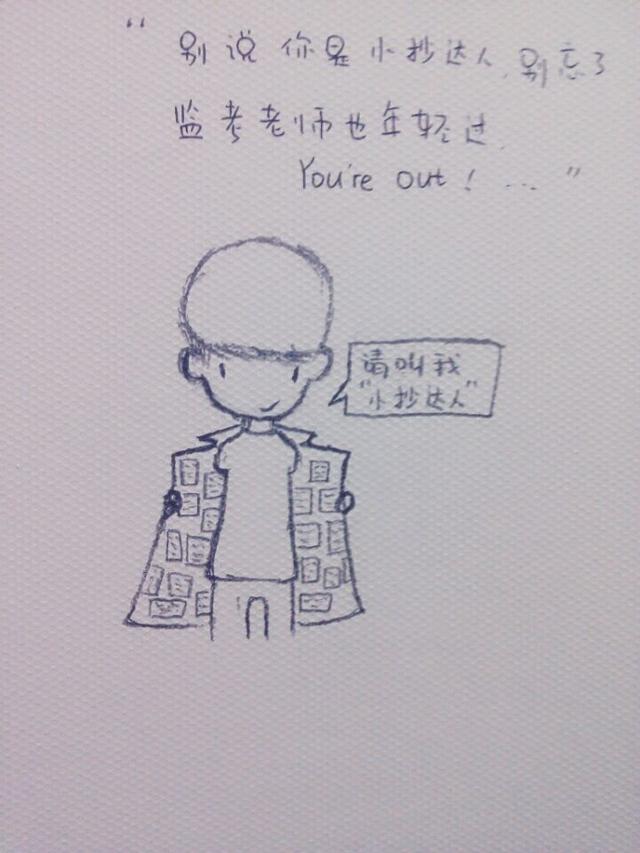 “ 别说你是小抄达人，别忘了
监考老师也年轻过，
You're out！... ”
请叫我
“小抄达人”